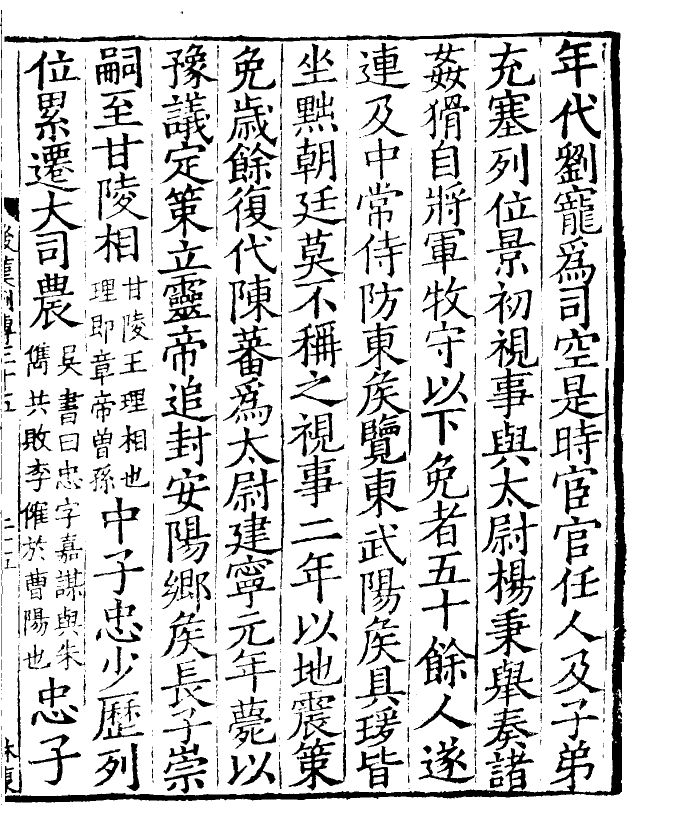 年代劉寵爲司空是時宦官任人及子弟
充塞列位景初視事與太尉楊秉舉奏諸
姦猾自將軍牧守以下免者五十餘人遂
連及中常侍防東矦覽東武陽矦具瑗皆
坐黜朝廷莫不稱之視事二年以地震策
免歲餘復代陳蕃爲太尉建寧元年薨以
豫議定策立靈帝追封安陽鄉矦長子崇
嗣至甘陵相甘陵王理相也理即章帝曾孫中子忠少歷列
位累遷大司農吳書曰忠字嘉謀與朱儁共敗李傕於曹陽也忠子